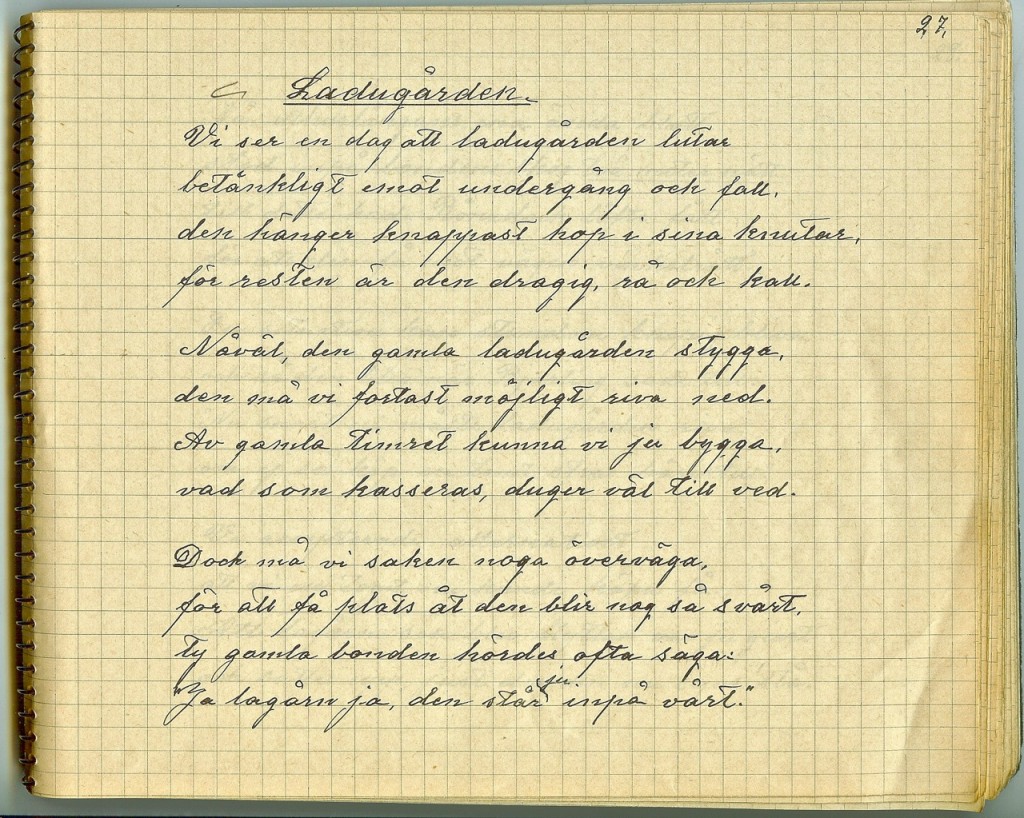 27.
Ladugården.
Vi ser en dag att ladugården lutar
betänkligt emot undergång och fall,
den hänger knappast hop i sina knutar,
för resten är den dragig, rå och kall.
Nåväl, den gamla ladugården stygga,
den må vi fortast möjligt riva ned.
Av gamla timret kunna vi ju bygga,
vad som kasseras, duger väl till ved.
Dock må vi saken noga överväga,
för att få plats åt den blir nog så svårt,
ty gamla bonden hördes ofta säga:
"Ja lagårn ja, den står ju inpå vårt."